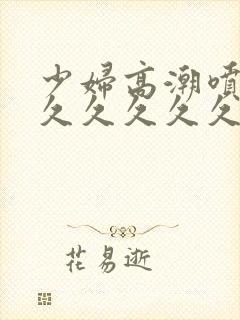 少婦高潮噴
久久久久久
花易逝